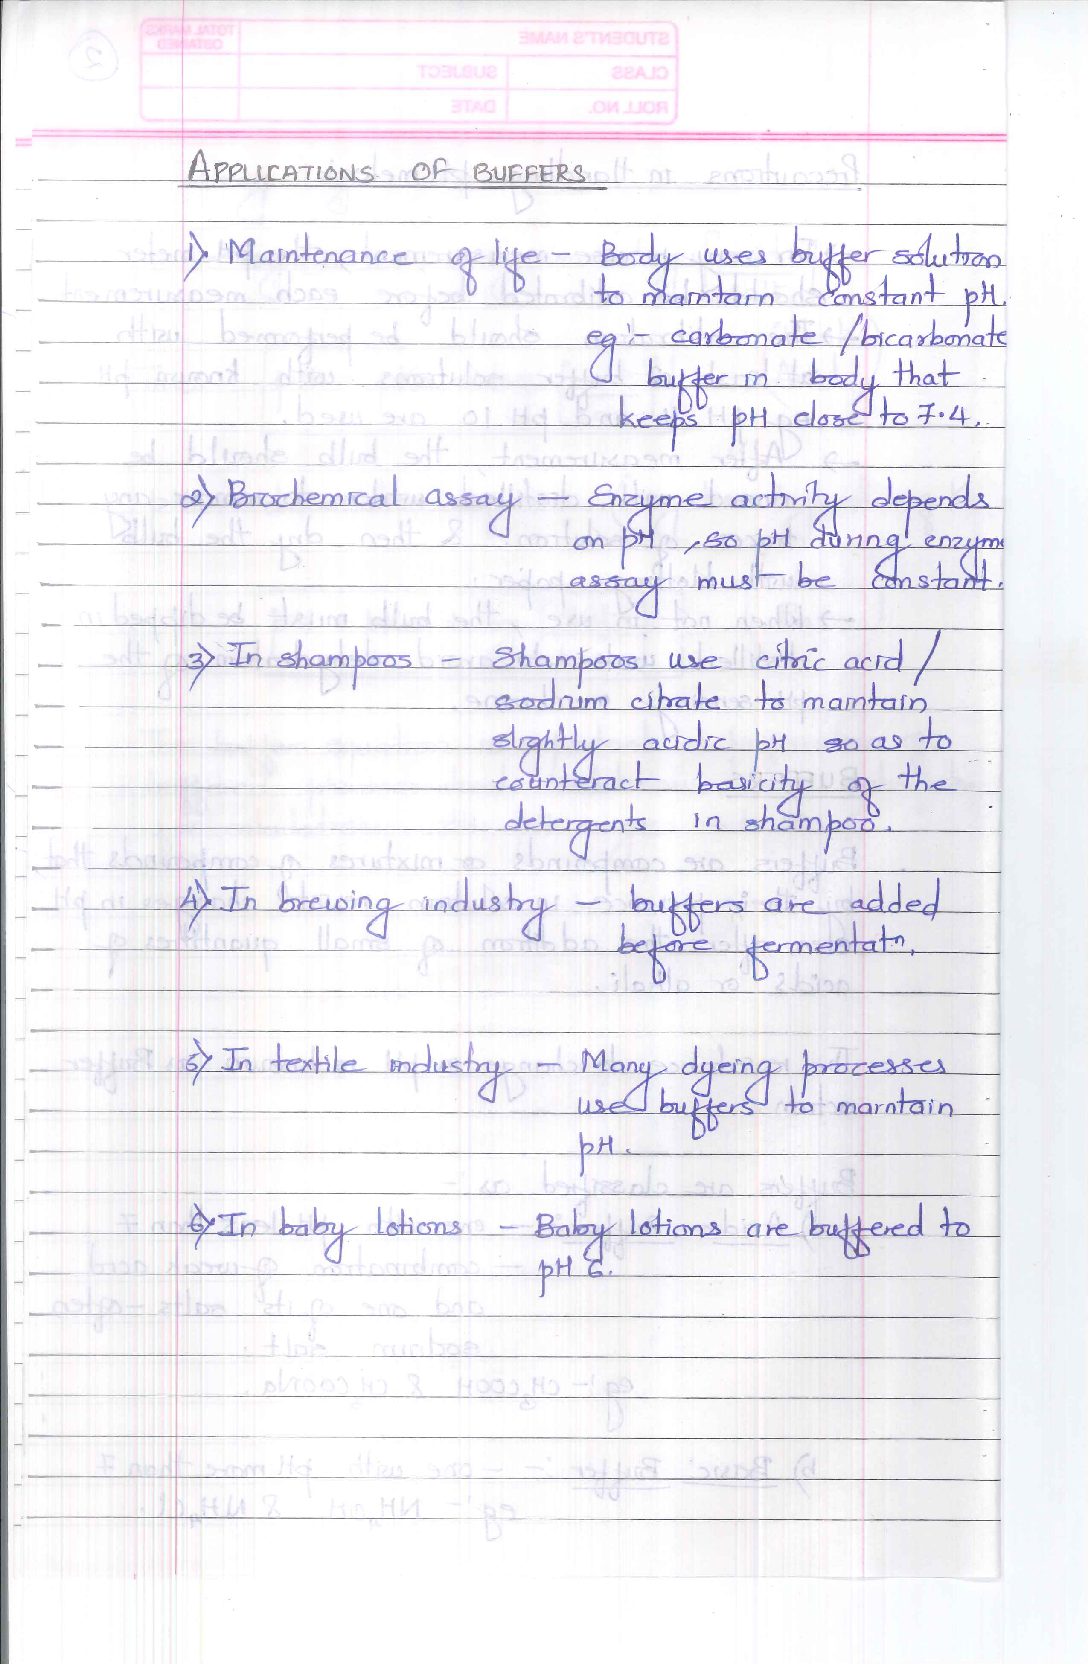 APPLICATIONS OF BUFFERS
1) Maintenance of life – Body uses buffer solution
to maintain constant pH.
eg:- carbonate / bicarbonate
buffer in body that
keeps pH close to 7.4.
2) Biochemical assay – Enzyme activity depends
on pH, so pH during enzym
assay must be constant.
3) In shampoos – Shampoos use citric acid /
sodium citrate to maintain
slightly acidic pH so as to
counteract basicity of the
detergents in shampoo.
4) In brewing industry – buffers are added
before fermentatn.
5) In textile industry – Many dyeing processes
use buffers to maintain
pH.
6) In baby lotions – Baby lotions are buffered to
pH 6.